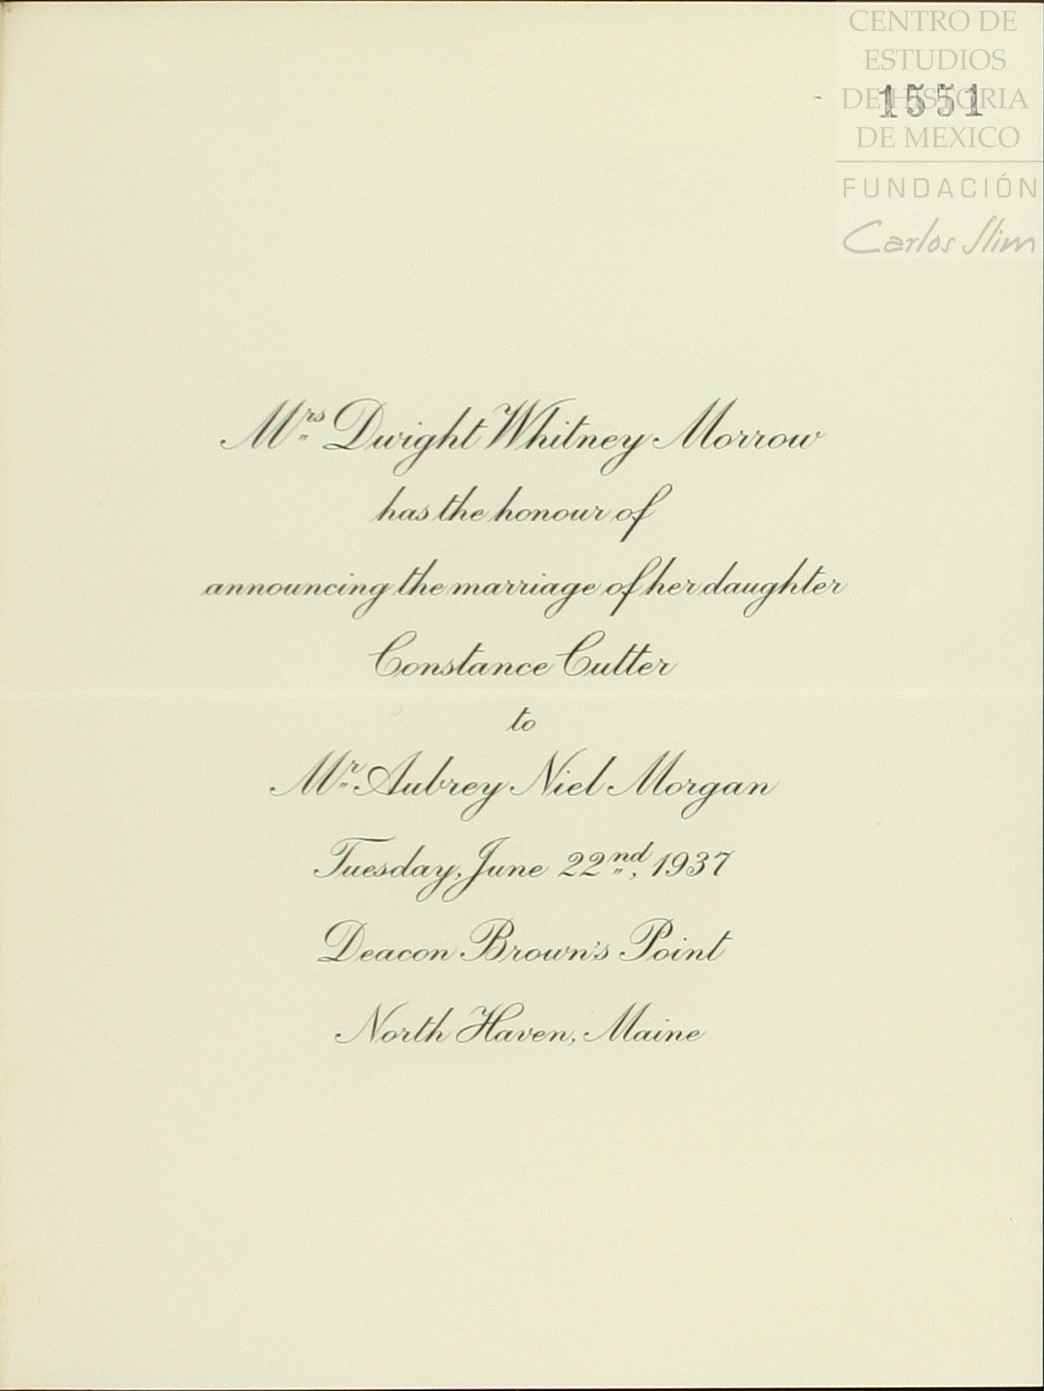 CENTRO DE
ESTUDIOS
DE HISTORIA
DE MEXICO
1551
FUNDACIÓN
Carlos Slim
Mrs. Dwight Whitney Morrow
has the honour of
announcing the marriage of her daughter
Constance Cutter
to
Mr. Aubrey Niel Morgan
Tuesday, June 22nd, 1937
Deacon Brown's Point
North Haven, Maine